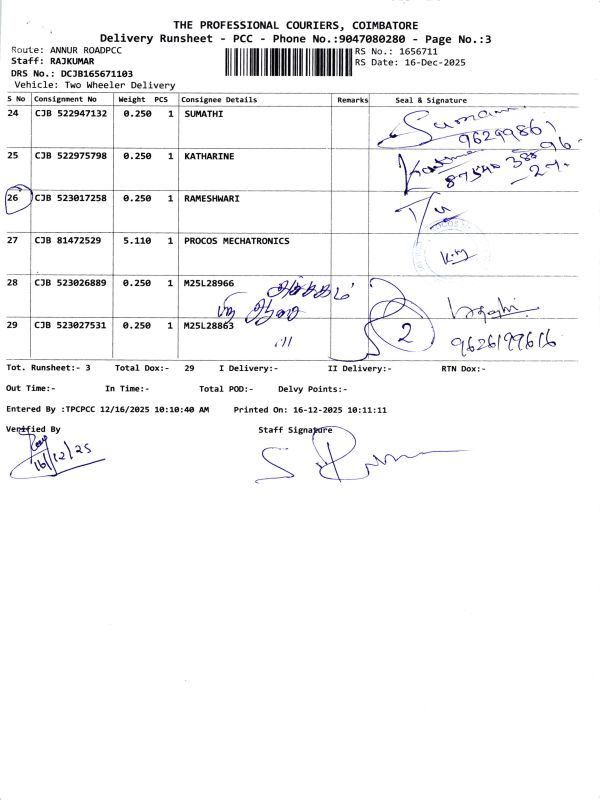 THE PROFESSIONAL COURIERS, COIMBATORE
Delivery Runsheet - PCC - Phone No.:9047080280 - Page No.:3
Route: ANNUR ROADPCC RS No.: 1656711
Staff: RAJKUMAR RS Date: 16-Dec-2025
DRS No.: DCJB165671103
Vehicle: Two Wheeler Delivery
S No Consignment No Weight PCS Consignee Details Remarks Seal & Signature
24 CJB 522947132 0.250 1 SUMATHI
25 CJB 522975798 0.250 1 KATHARINE
26 CJB 523017258 0.250 1 RAMESHWARI
27 CJB 81472529 5.110 1 PROCOS MECHATRONICS
28 CJB 523026889 0.250 1 M25L28966
29 CJB 523027531 0.250 1 M25L28863 2
9626199616
Tot. Runsheet:- 3 Total Dox:- 29 I Delivery:- II Delivery:- RTN Dox:-
Out Time:- In Time:- Total POD:- Delvy Points:-
Entered By :TPCPCC 12/16/2025 10:10:40 AM Printed On: 16-12-2025 10:11:11
Verified By Staff Signature
16/12/25